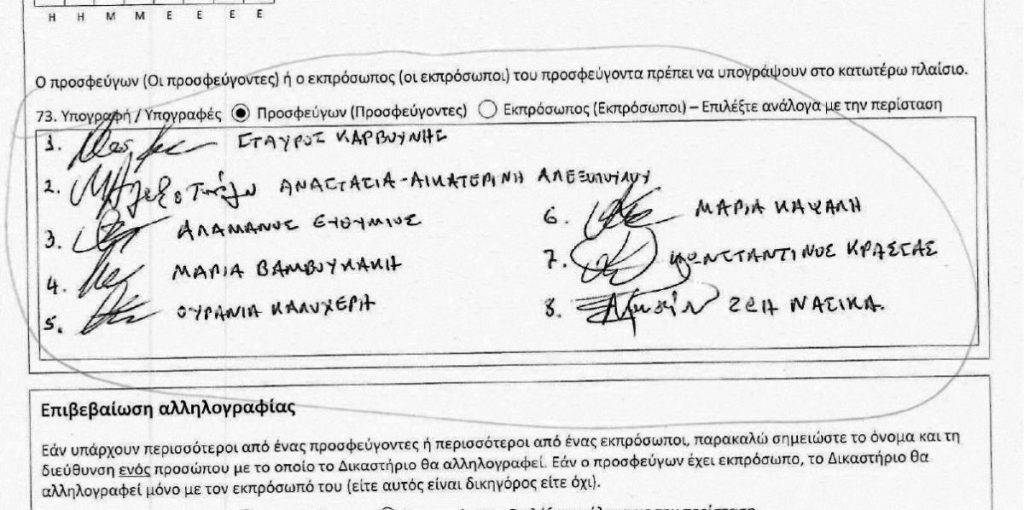 Η Η Μ Μ Ε Ε Ε Ε
Ο προσφεύγων (Οι προσφεύγοντες) ή ο εκπρόσωπος (οι εκπρόσωποι) του προσφεύγοντα πρέπει να υπογράψουν στο κατωτέρω πλαίσιο.
73. Υπογραφή / Υπογραφές Προσφεύγων (Προσφεύγοντες) Εκπρόσωπος (Εκπρόσωποι) – Επιλέξτε ανάλογα με την περίσταση
1. ΣΤΑΥΡΟΣ ΚΑΡΒΟΥΝΗΣ
2. ΑΝΑΣΤΑΣΙΑ-ΑΙΚΑΤΕΡΙΝΗ ΑΛΕΞΟΠΟΥΛΟΥ
3. ΑΛΑΜΑΝΟΣ ΕΥΘΥΜΙΟΣ
4. ΜΑΡΙΑ ΒΑΜΒΟΥΚΑΚΗ
5. ΟΥΡΑΝΙΑ ΚΑΛΥΧΕΡΗ
6. ΜΑΡΙΑ ΚΑΨΑΛΗ
7. ΚΩΝΣΤΑΝΤΙΝΟΣ ΚΡΑΣΣΑΣ
8. ΖΩΗ ΝΑΣΙΚΑ
Επιβεβαίωση αλληλογραφίας
Εάν υπάρχουν περισσότεροι από ένας προσφεύγοντες ή περισσότεροι από ένας εκπρόσωποι, παρακαλώ σημειώστε το όνομα και τη
διεύθυνση ενός προσώπου με το οποίο το Δικαστήριο θα αλληλογραφεί. Εάν ο προσφεύγων έχει εκπρόσωπο, το Δικαστήριο θα
αλληλογραφεί μόνο με τον εκπρόσωπό του (είτε αυτός είναι δικηγόρος είτε όχι).